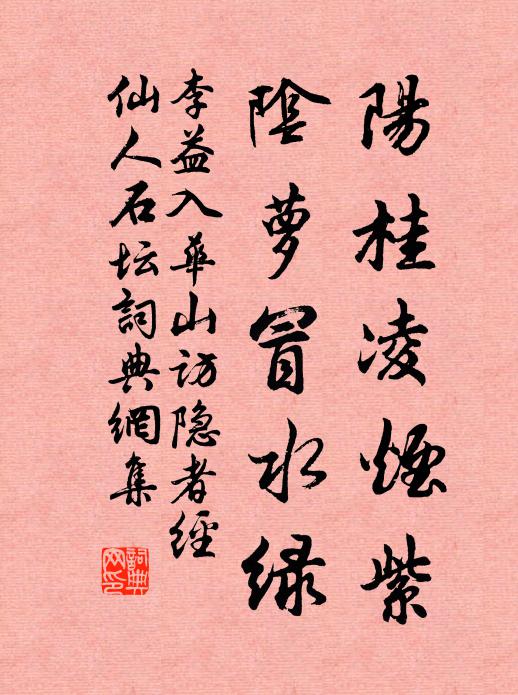 陽桂凌煙紫
陰夢冒水緑
李益入華山訪隐者經
仙人石坛詞典網集
詞典网印